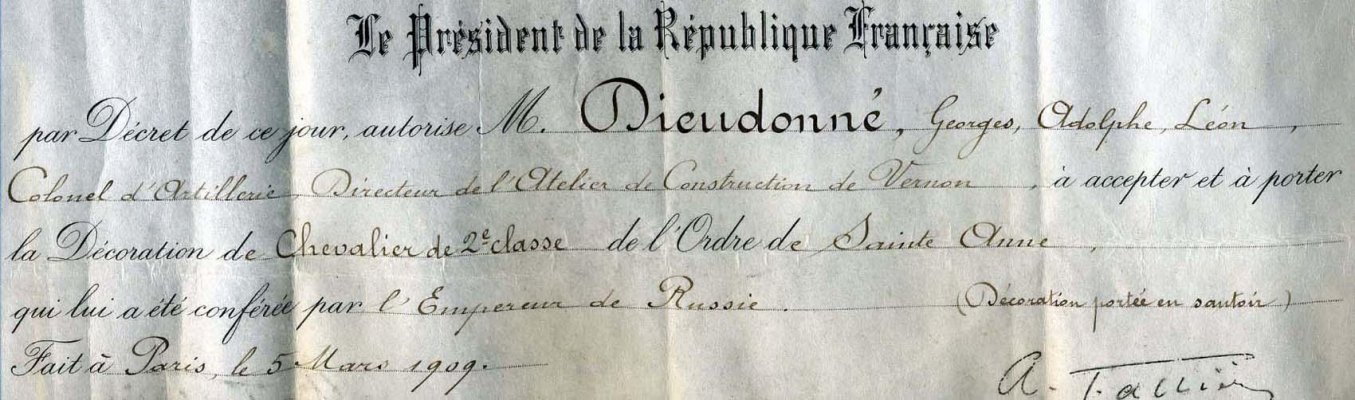 Le Président de la République Française
par Décret de ce jour, autorise M. Dieudonné, Georges, Adolphe, Léon,
Colonel d'Artillerie, Directeur de l'Atelier de Construction de Vernon, à accepter et à porter
la Décoration de Chevalier de 2e classe de l'Ordre de Sainte Anne,
qui lui a été conférée par l'Empereur de Russie. (Décoration portée en sautoir)
Fait à Paris, le 5 Mars 1909.
A.